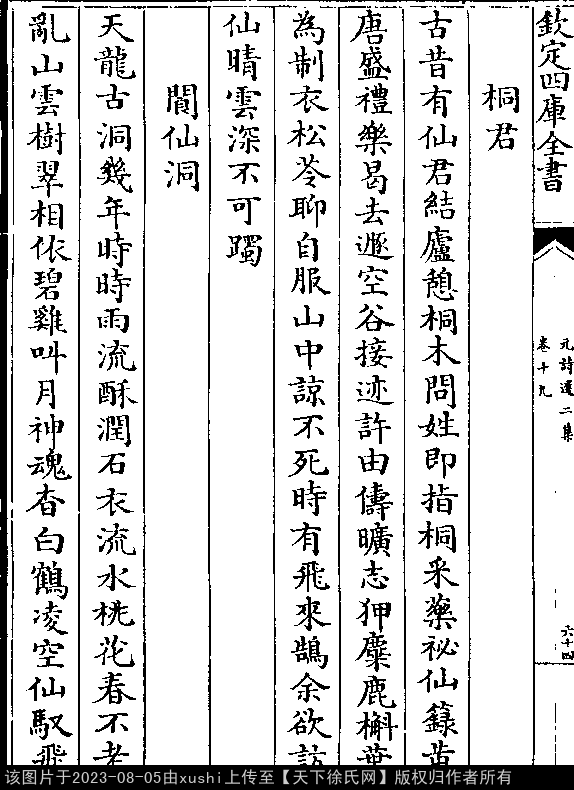 欽定四庫全書
元詩選二集
卷十九
六十四
桐君
古昔有仙君結廬憩桐木問姓即指桐采藥祕仙籙黄
唐盛禮樂曷去遯空谷接迹許由儔曠志狎麋鹿槲葉
為制衣松苓聊自服山中諒不死時有飛來鵠余欲訪
仙晴雲深不可躅
閬仙洞
天龍古洞幾年時時雨流酥潤石衣流水桃花春不老
亂山雲樹翠相依碧雞叫月神魂杳白鶴凌空仙馭飛
该图片于2023-08-05由xushi上传至【天下徐氏网】版权归作者所有